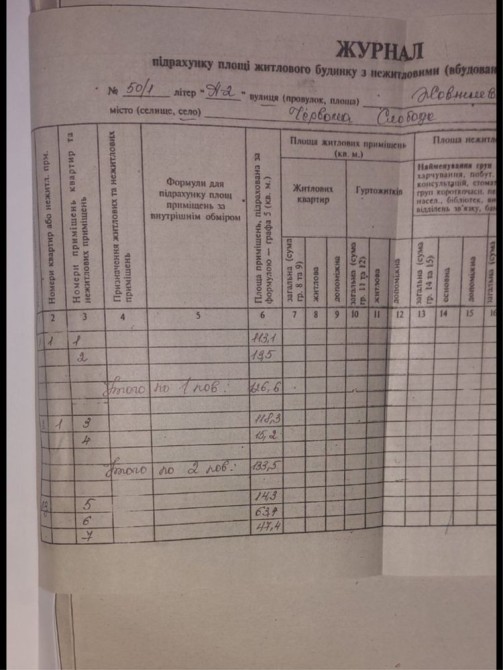 ЖУРНАЛ
підрахунку площі житлового будинку з нежитловими (вбудован
№ 50/1 літер "А-2" вулиця (провулок, площа) Жовтнев
місто (селище, село) Червона Слобода
Номери квартир або нежитл. прм.
Номери приміщень квартир та нежитлових приміщень
Призначення житлових та нежитлових приміщень
Формули для підрахунку площ приміщень за внутрішнім обміром
Площа приміщень, підрахована за формулою — графа 5 (кв. м.)
Площа житлових приміщень (кв. м.)
Житлових квартир
Гуртожитків
загальна (сума гр. 8 та 9)
житлова
допоміжна
загальна (сума гр. 11 та 12)
житлова
допоміжна
Площа нежитл
Найменування груп
харчування, побут.
консультацій, стомат
насел., бібліотек, ви
відділень зв'язку, бан
загальна (сума гр. 14 та 15)
основна
допоміжна
загальна (сума
2 3 4 5 6 7 8 9 10 11 12 13 14 15 16
1 1 113,1
2 13,5
Итого по 1 пов.: 126,6
1 3 118,3
4 15,2
Итого по 2 пов.: 133,5
5 14,3
6 63,9
7 47,4